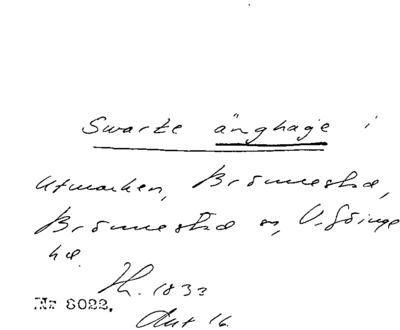 Swarte änghage i
Utmarken, Brönnestad,
Brönnestad sn, V. Göinge
hd.
Th. 1833
Nr 8022.
Akt 16